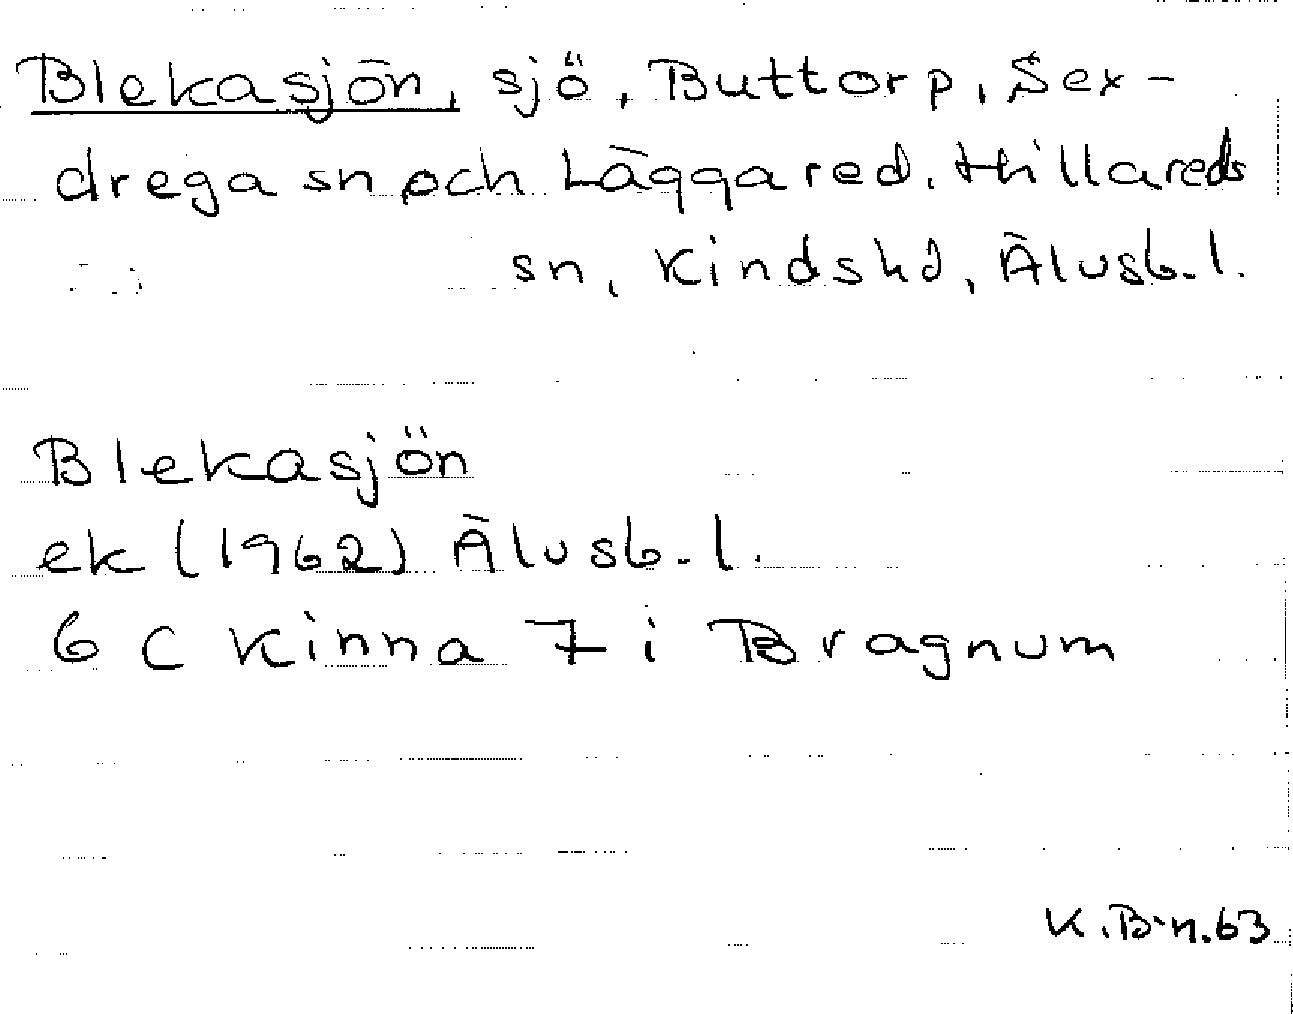 Blekasjön, sjö, Buttorp, Sex-
drega sn och Läggared, Hillareds
sn, Kinds hd, Älvsb. l.
Blekasjön
ek (1962) Älvsb. l.
6 C Kinna 7 i Bragnum
K.B-n.63